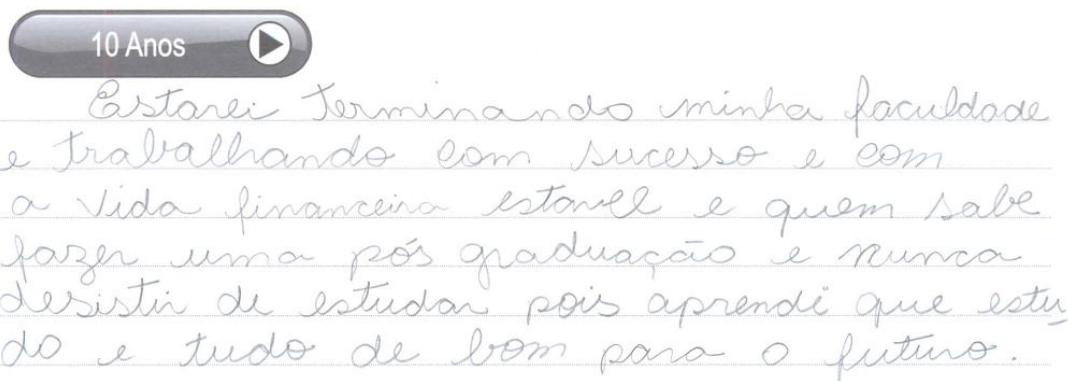 10 Anos
Estarei terminando minha faculdade
e trabalhando com sucesso e com
a vida financeira estavel e quem sabe
fazer uma pós graduação e nunca
desistir de estudar pois aprendi que estu_
do e tudo de bom para o futuro.